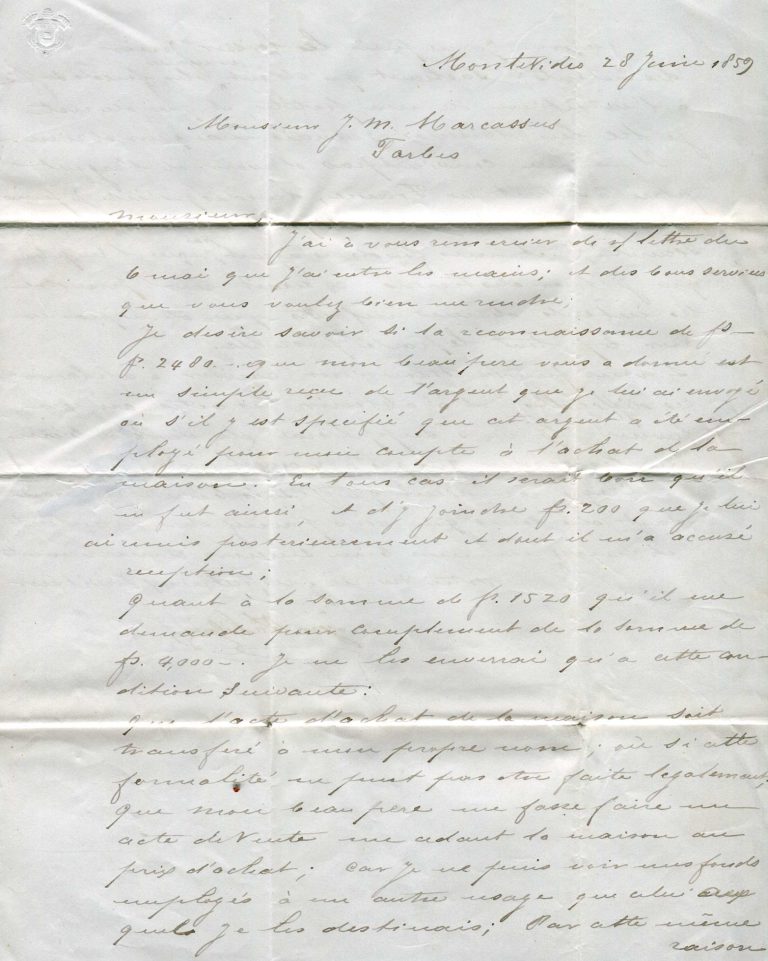 Montevideo 28 Juin 1859
Monsieur J. M. Marcassus
Tarbes
Monsieur,
J'ai à vous remercier de v/ lettre du
6 mai que j'ai entre les mains; et des bons services
que vous voulez bien me rendre.
Je desire savoir si la reconnaissance de fs–
f. 2480.. que mon beau pere vous a donné est
un simple reçu de l'argent que je lui ai envoyé
où s'il y est spécifié que cet argent a été em-
ployé pour mon compte à l'achat de la
maison. En tous cas il serait bon qu'il
en fut ainsi, et d'y joindre fs. 200 que je lui
ai remis posterieurement et dont il m'a accusé
reception;
Quant à la somme de fs. 1520 qu'il me
demande pour complement de la somme de
fs. 4000–. Je ne les enverrai qu'a cette con-
dition suivante:
Que l'acte d'achat de la maison soit
transferé à mon propre nom; où si cette
formalité ne peut pas être faite légalement,
que mon beau pere me fasse faire un
acte de Vente me cedant la maison au
prix d'achat; car je ne puis voir mes fonds
employés à un autre usage que celui aux
quels je les destinais; Par cette même
raison